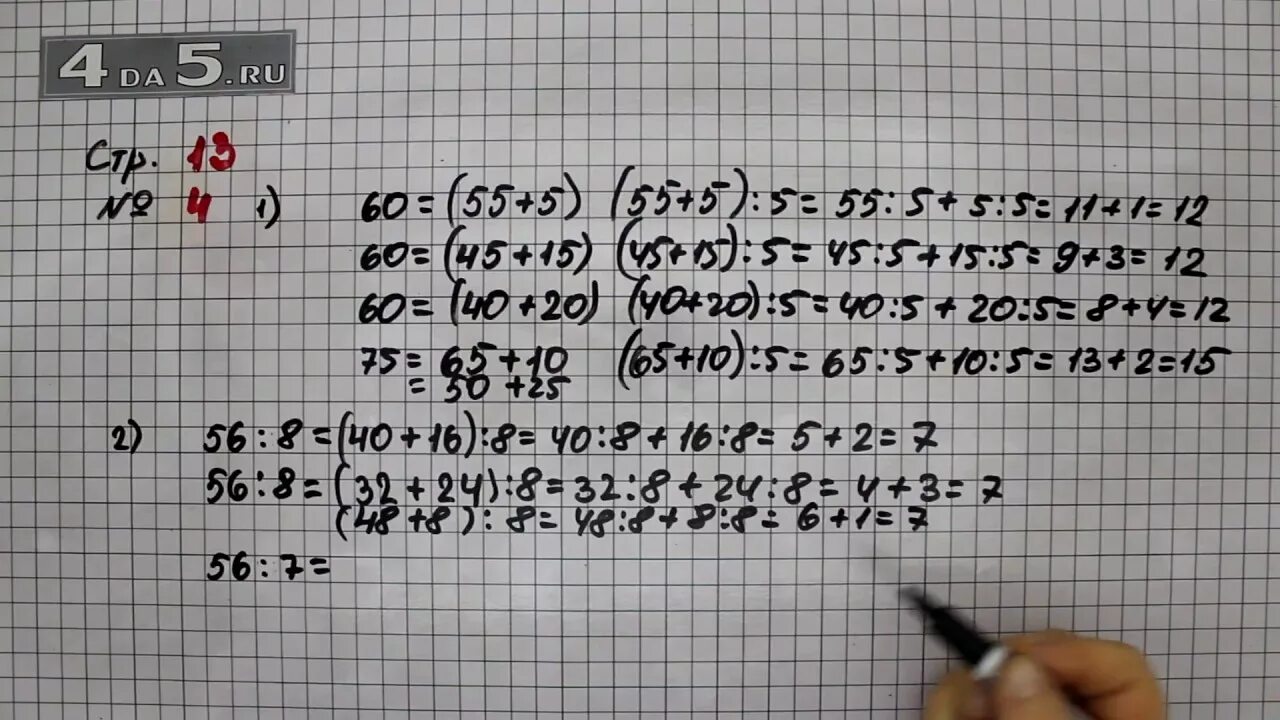 4DA5.RU
Стр. 13
№ 4 1) 60 = (55+5) (55+5):5= 55:5+5:5= 11+1= 12
60 = (45+15) (45+15):5= 45:5+15:5= 9+3= 12
60= (40+20) (40+20):5= 40:5 + 20:5= 8+4=12
75= 65+10 (65+10):5= 65:5+10:5= 13+2=15
= 50 +25
2) 56:8=(40+16):8= 40:8+16:8= 5+2=7
56:8=(32+24):8=32:8+24:8= 4+3=7
(48+8): 8= 48:8+8:8= 6+1=7
56:7=